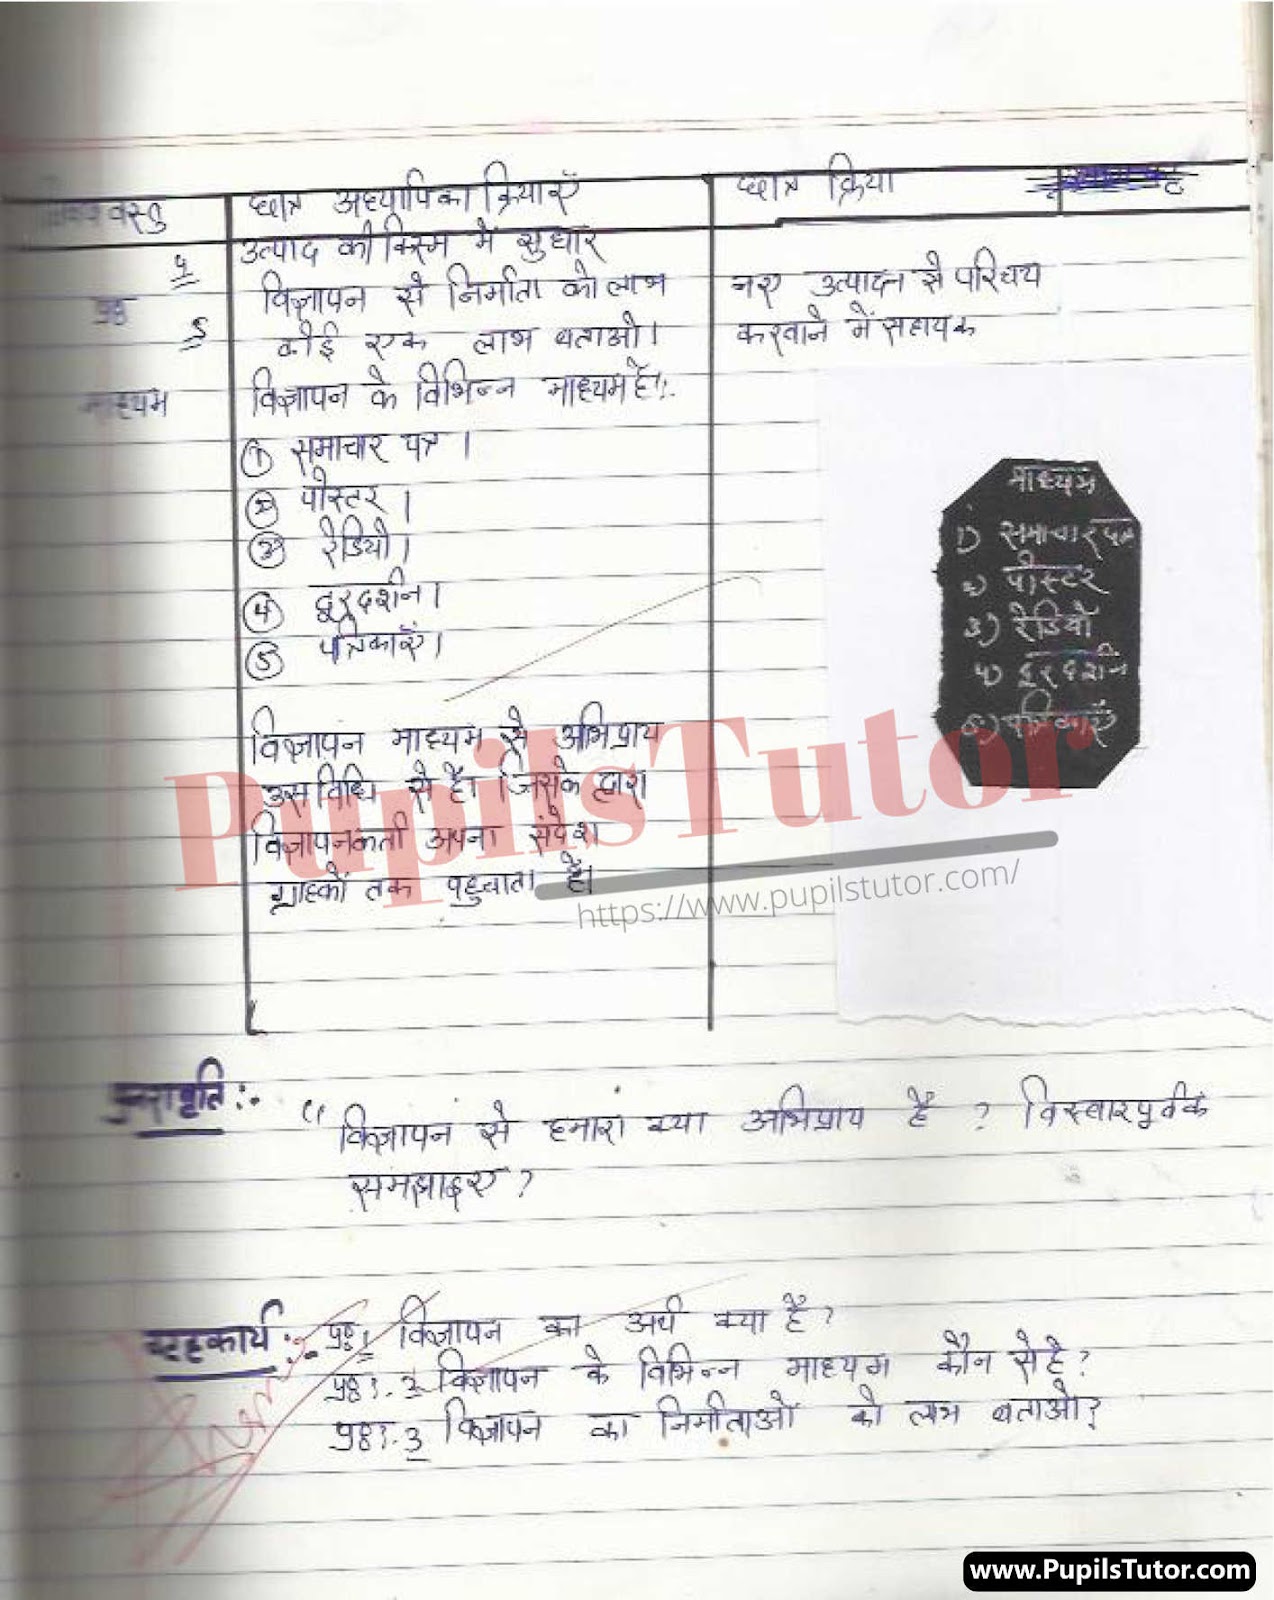 वस्तु
छात्र अध्यापिका क्रियाएँ
छात्र क्रिया
4 उत्पाद की किस्म में सुधार
प्रश्न 5 विज्ञापन से निर्माता को लाभ
कोई एक लाभ बताओ।
नए उत्पादन से परिचय
करवाने में सहायक
माध्यम
विज्ञापन के विभिन्न माध्यम है।:-
① समाचार पत्र।
② पोस्टर।
③ रेडियो।
④ दूरदर्शन।
⑤ पत्रिकाएँ।
विज्ञापन माध्यम से अभिप्राय
उस विधि से है। जिसके द्वारा
विज्ञापनकर्ता अपना संदेश
ग्राहकों तक पहुचाता है।
माध्यम
1) समाचार पत्र
2) पोस्टर
3) रेडियो
4) दूरदर्शन
5) पत्रिकाएँ
PupilsTutor
https://www.pupilstutor.com/
पुनरावृति :-
" विज्ञापन से हमारा क्या अभिप्राय है ? विस्तारपूर्वक
समझाइए ?
गृहकार्य :-
प्रश्न 1 विज्ञापन का अर्थ क्या है ?
विज्ञापन के विभिन्न माध्यम कौन से है ?
3 विज्ञापन का निर्माताओ को लाभ बताओ ?
www.PupilsTutor.com